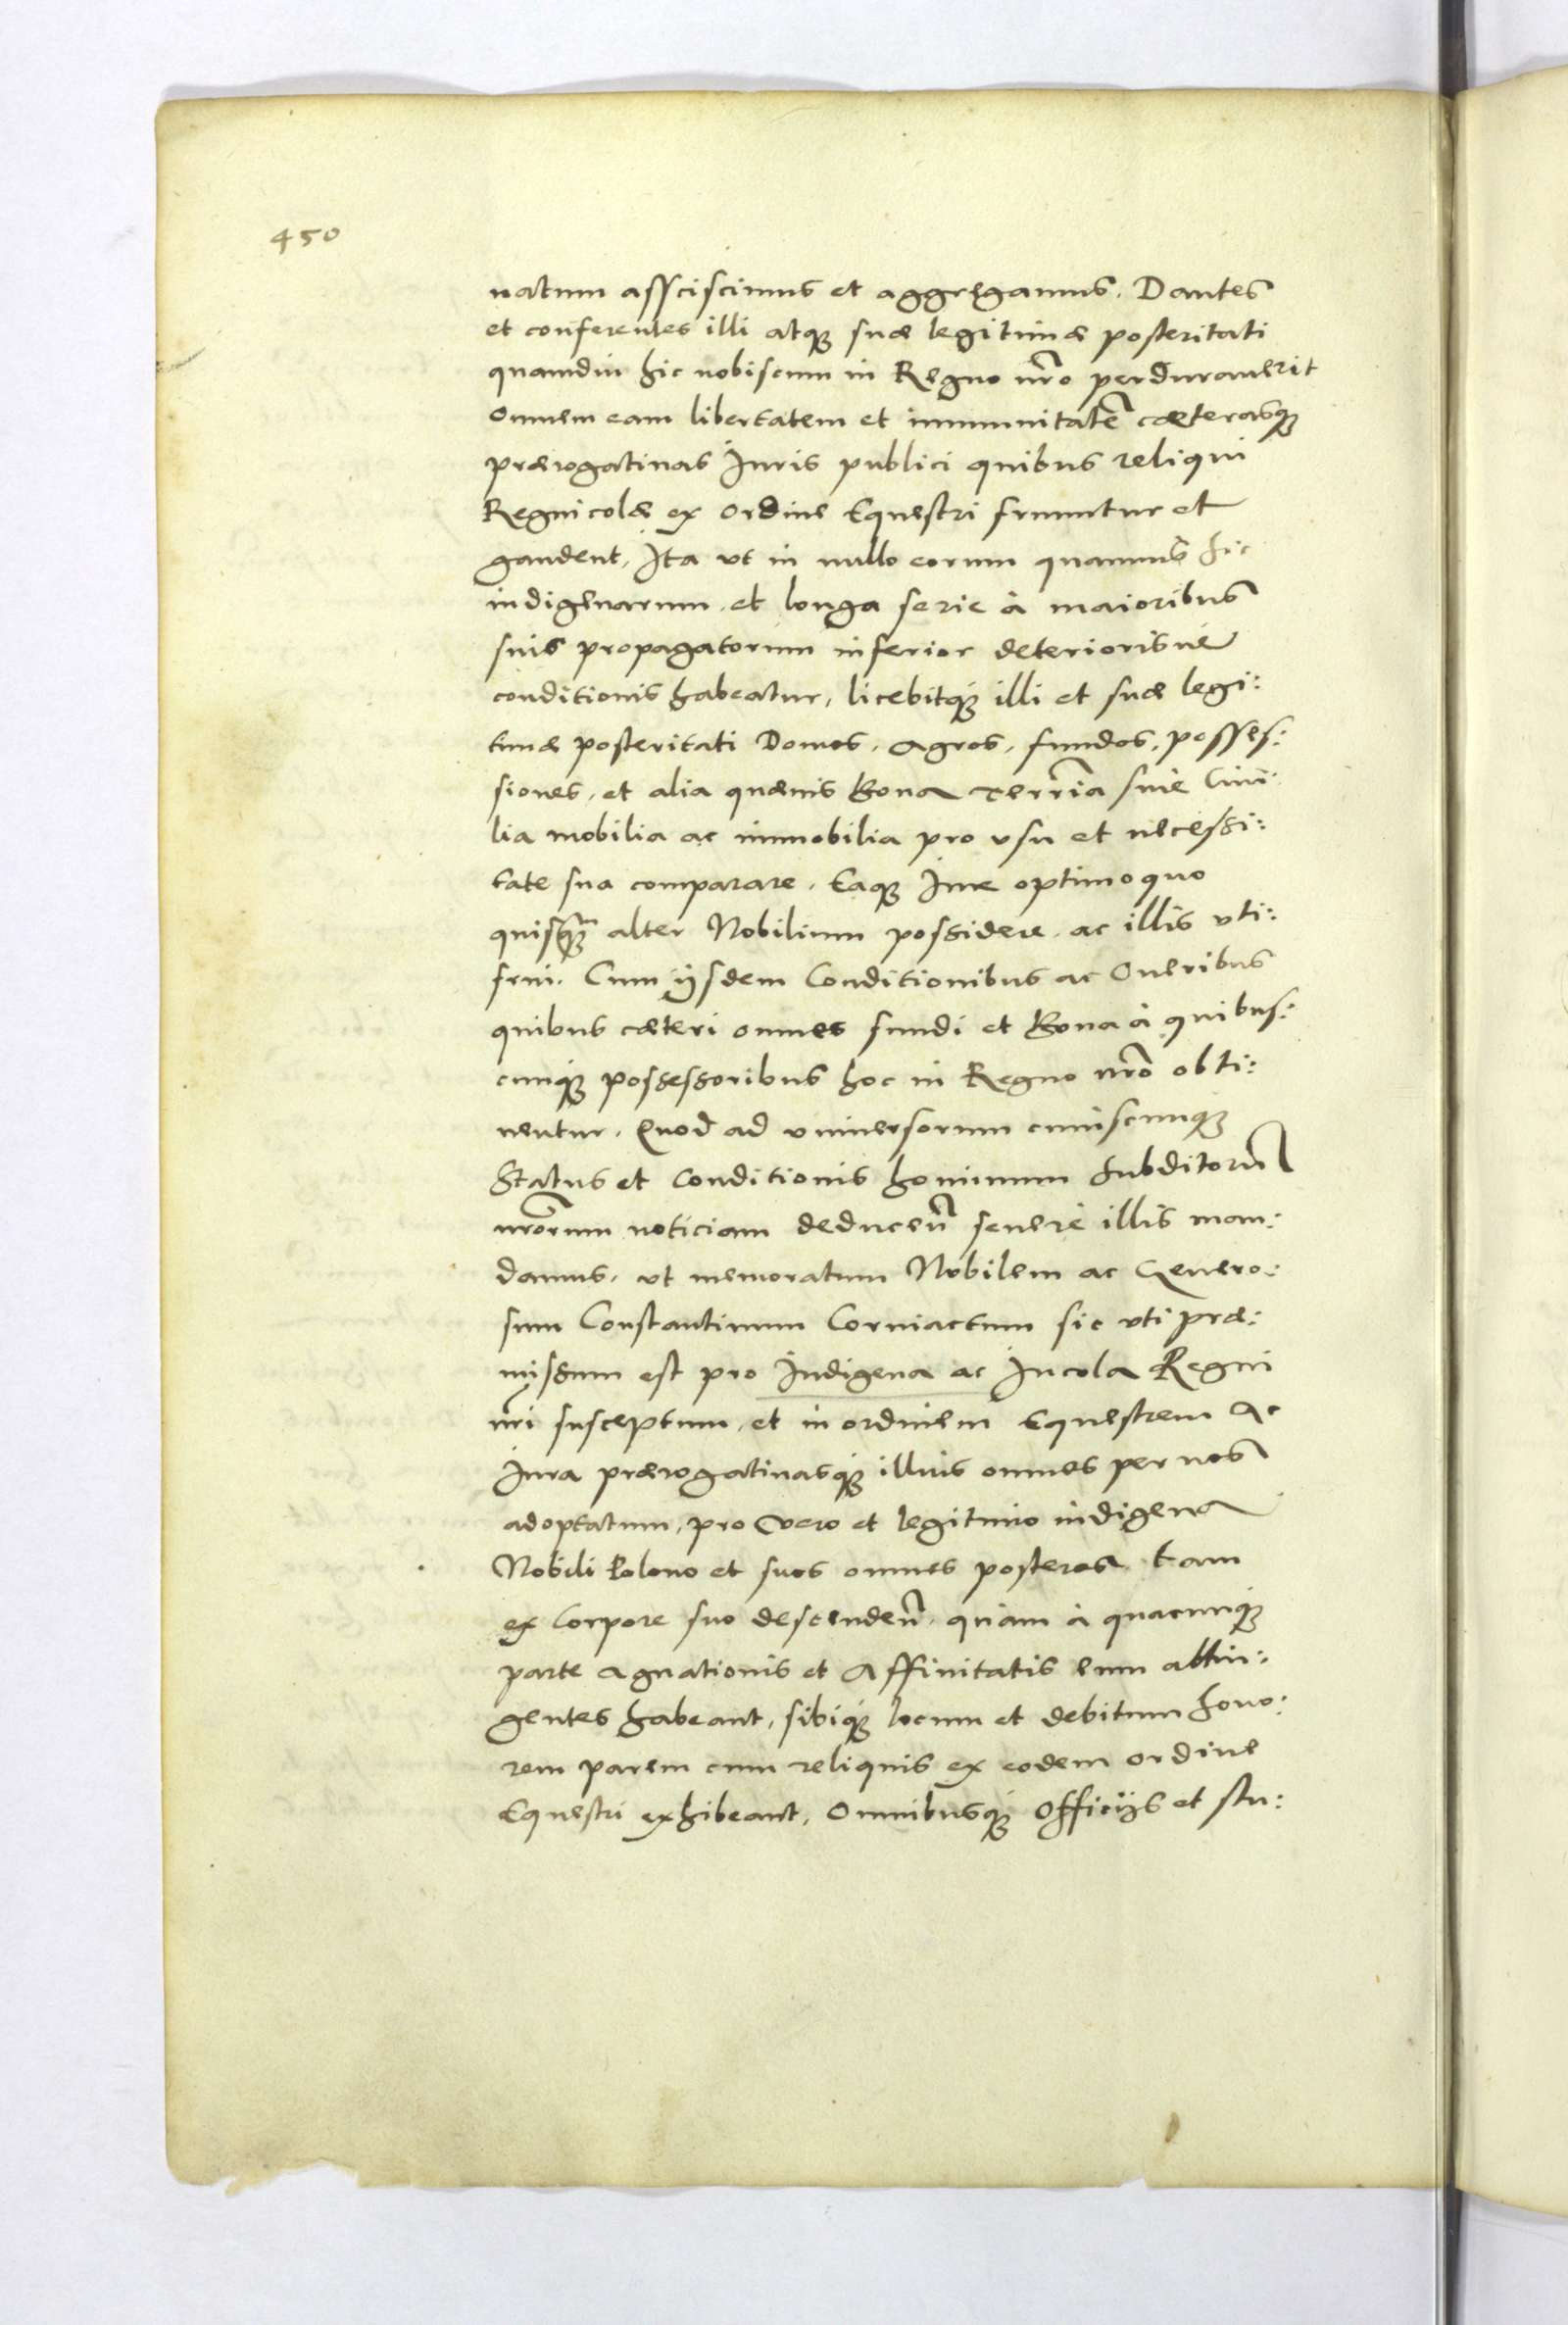 450
natum assciscimus et aggregamus. Dantes
et conferentes illi atq; suæ legitimæ posteritati
quamdiu hic nobiscum in Regno nr̃o perdurauerit
omnem eam libertatem et immunitatẽ cæterasq;
prærogatiuas Iuris publici quibus reliqui
Regnicolæ ex ordine Equestri fruuntur et
gaudent, Ita vt in nullo eorum quamuis hic
indigenarum et longa serie à maioribus
suis propagatorum inferior deteriorisuè
conditionis habeatur, licebitq; illi et suæ legi:
timæ posteritati Domos, Agros, fundos, posses:
siones, et alia quæuis Bona terrr̃ia siue Ciui:
lia mobilia ac immobilia pro vsu et necessi:
tate sua comparare. Eaq; Iure optimo quo
quisq; alter Nobilium possidere ac illis vti:
frui. Cum ijsdem Conditionibus ac Oneribus
quibus cæteri omnes fundi et Bona à quibus:
cunq; possessoribus hoc in Regno nr̃o obti:
nentur. Quod ad vniuersorum cuiuscunq;
Status et conditionis hominum subditorũ
nr̃orum noticiam deducen̄ seuerè illis man:
damus, vt memoratum Nobilem ac Genero:
sum Constantinum Corniactum sic vti præ:
missum est pro Indigena ac Incola Regni
nr̃i susceptum, et in ordinem Equestrem ac
Iura prærogatiuasq; illius omnes per nos
adoptatum, pro vero et legitimo indigena
Nobili Polono et suos omnes posteros tam
ex Corpore suo descenden̄ quàm à quacunq;
parte Agnationis et Affinitatis eum attin:
gentes habeant, sibiq; locum et debitum hono:
rem parem cum reliquis ex eodem ordine
Equestri exhibeant, Omnibusq; Officijs et stu: